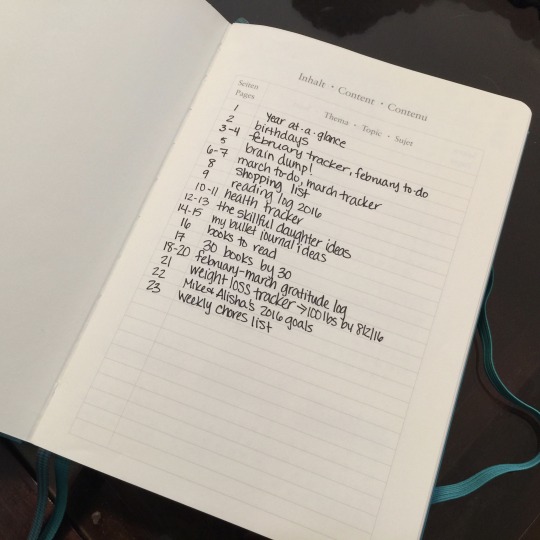 Inhalt · Content · Contenu
Seiten
Pages
Thema · Topic · Sujet
1 Year at·a·glance
2 birthdays
3-4 february tracker, february to·do
5 brain dump!
6-7 march to·do, march tracker
8 shopping list
9 reading log 2016
10-11 health tracker
12-13 the skillful daughter ideas
14-15 my bullet journal ideas
16 books to read
17 30 books by 30
18-20 february-march gratitude log
21 weight loss tracker → 100lbs by 8/2/16
22 Mike & Alisha's 2016 goals
23 weekly chores list